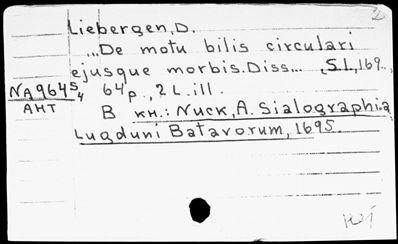 Liebergen, D.
...De motu bilis circulari
ejusque morbis. Diss... S.l., 169..
NA964 5/4 64 p., 2 L. ill.
AHT В кн.: Nuck, A. Sialographia
Lugduni Batavorum, 1695.